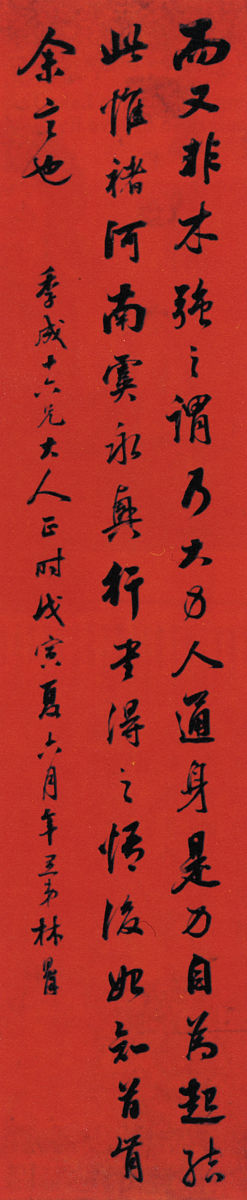 而又非木強之謂乃大力人通身是力自為起結
此惟褚河南虞永興行書得之悟後始知首肯
余言也
季成十六兄大人正時戊寅夏六月年立弟林